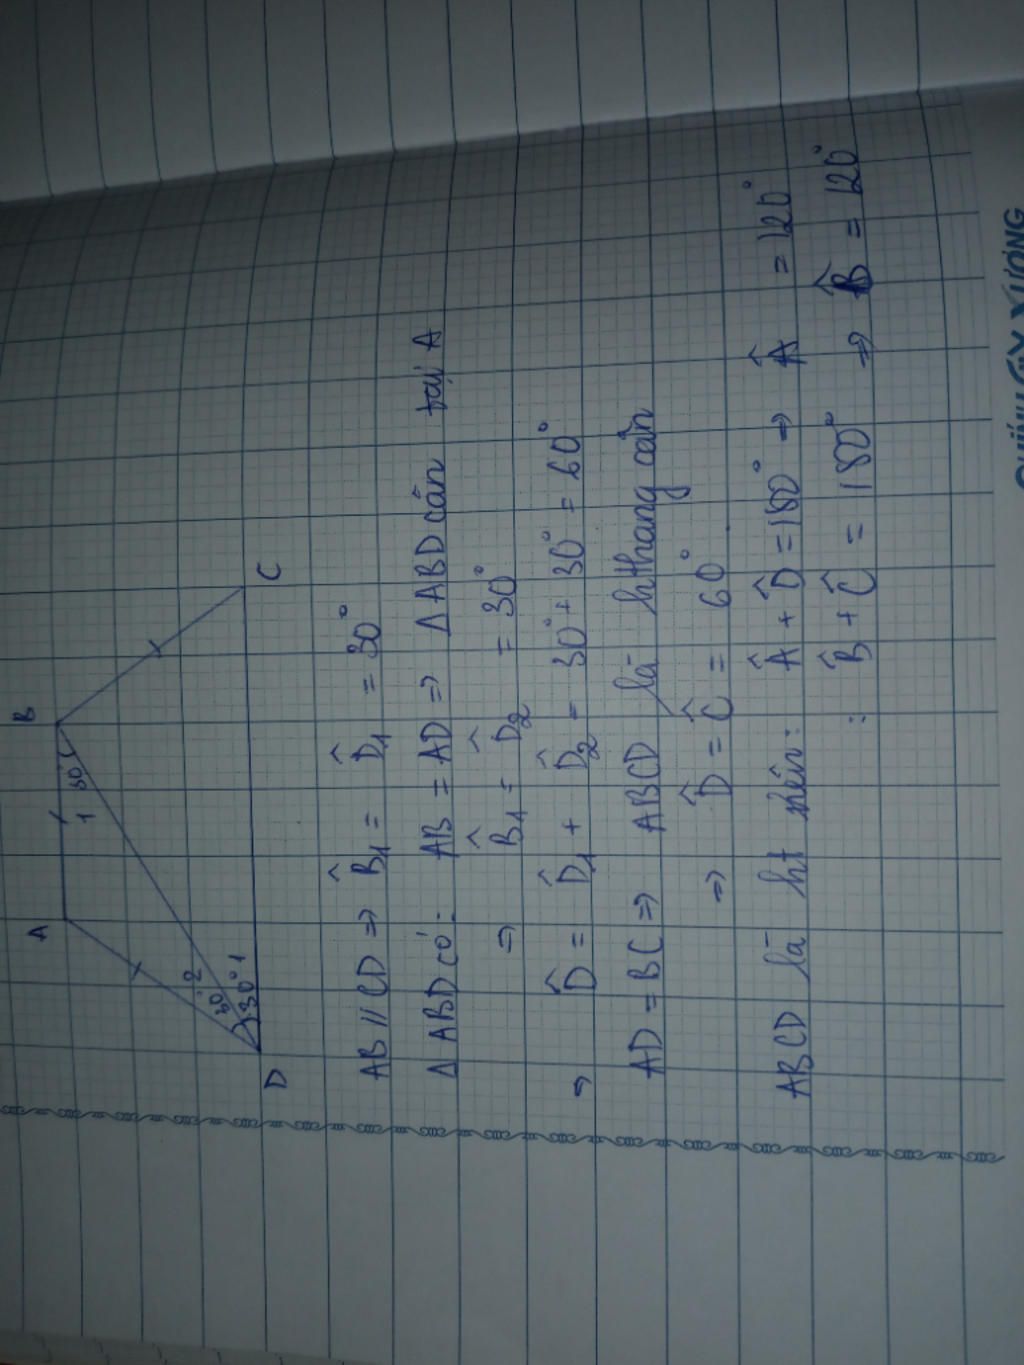 A
B
1
30°
2
30°
30° 1
D
C
AB // CD => B̂₁ = D̂₁ = 30°
Δ ABD có: AB = AD => Δ ABD cân tại A
=> B̂₁ = D̂₂ = 30°
=> D̂ = D̂₁ + D̂₂ = 30° + 30° = 60°
AD = BC => ABCD là hthang cân
=> D̂ = Ĉ = 60°
ABCD là ht nên: Â + D̂ = 180° => Â = 120°
: B̂ + Ĉ = 180° => B̂ = 120°